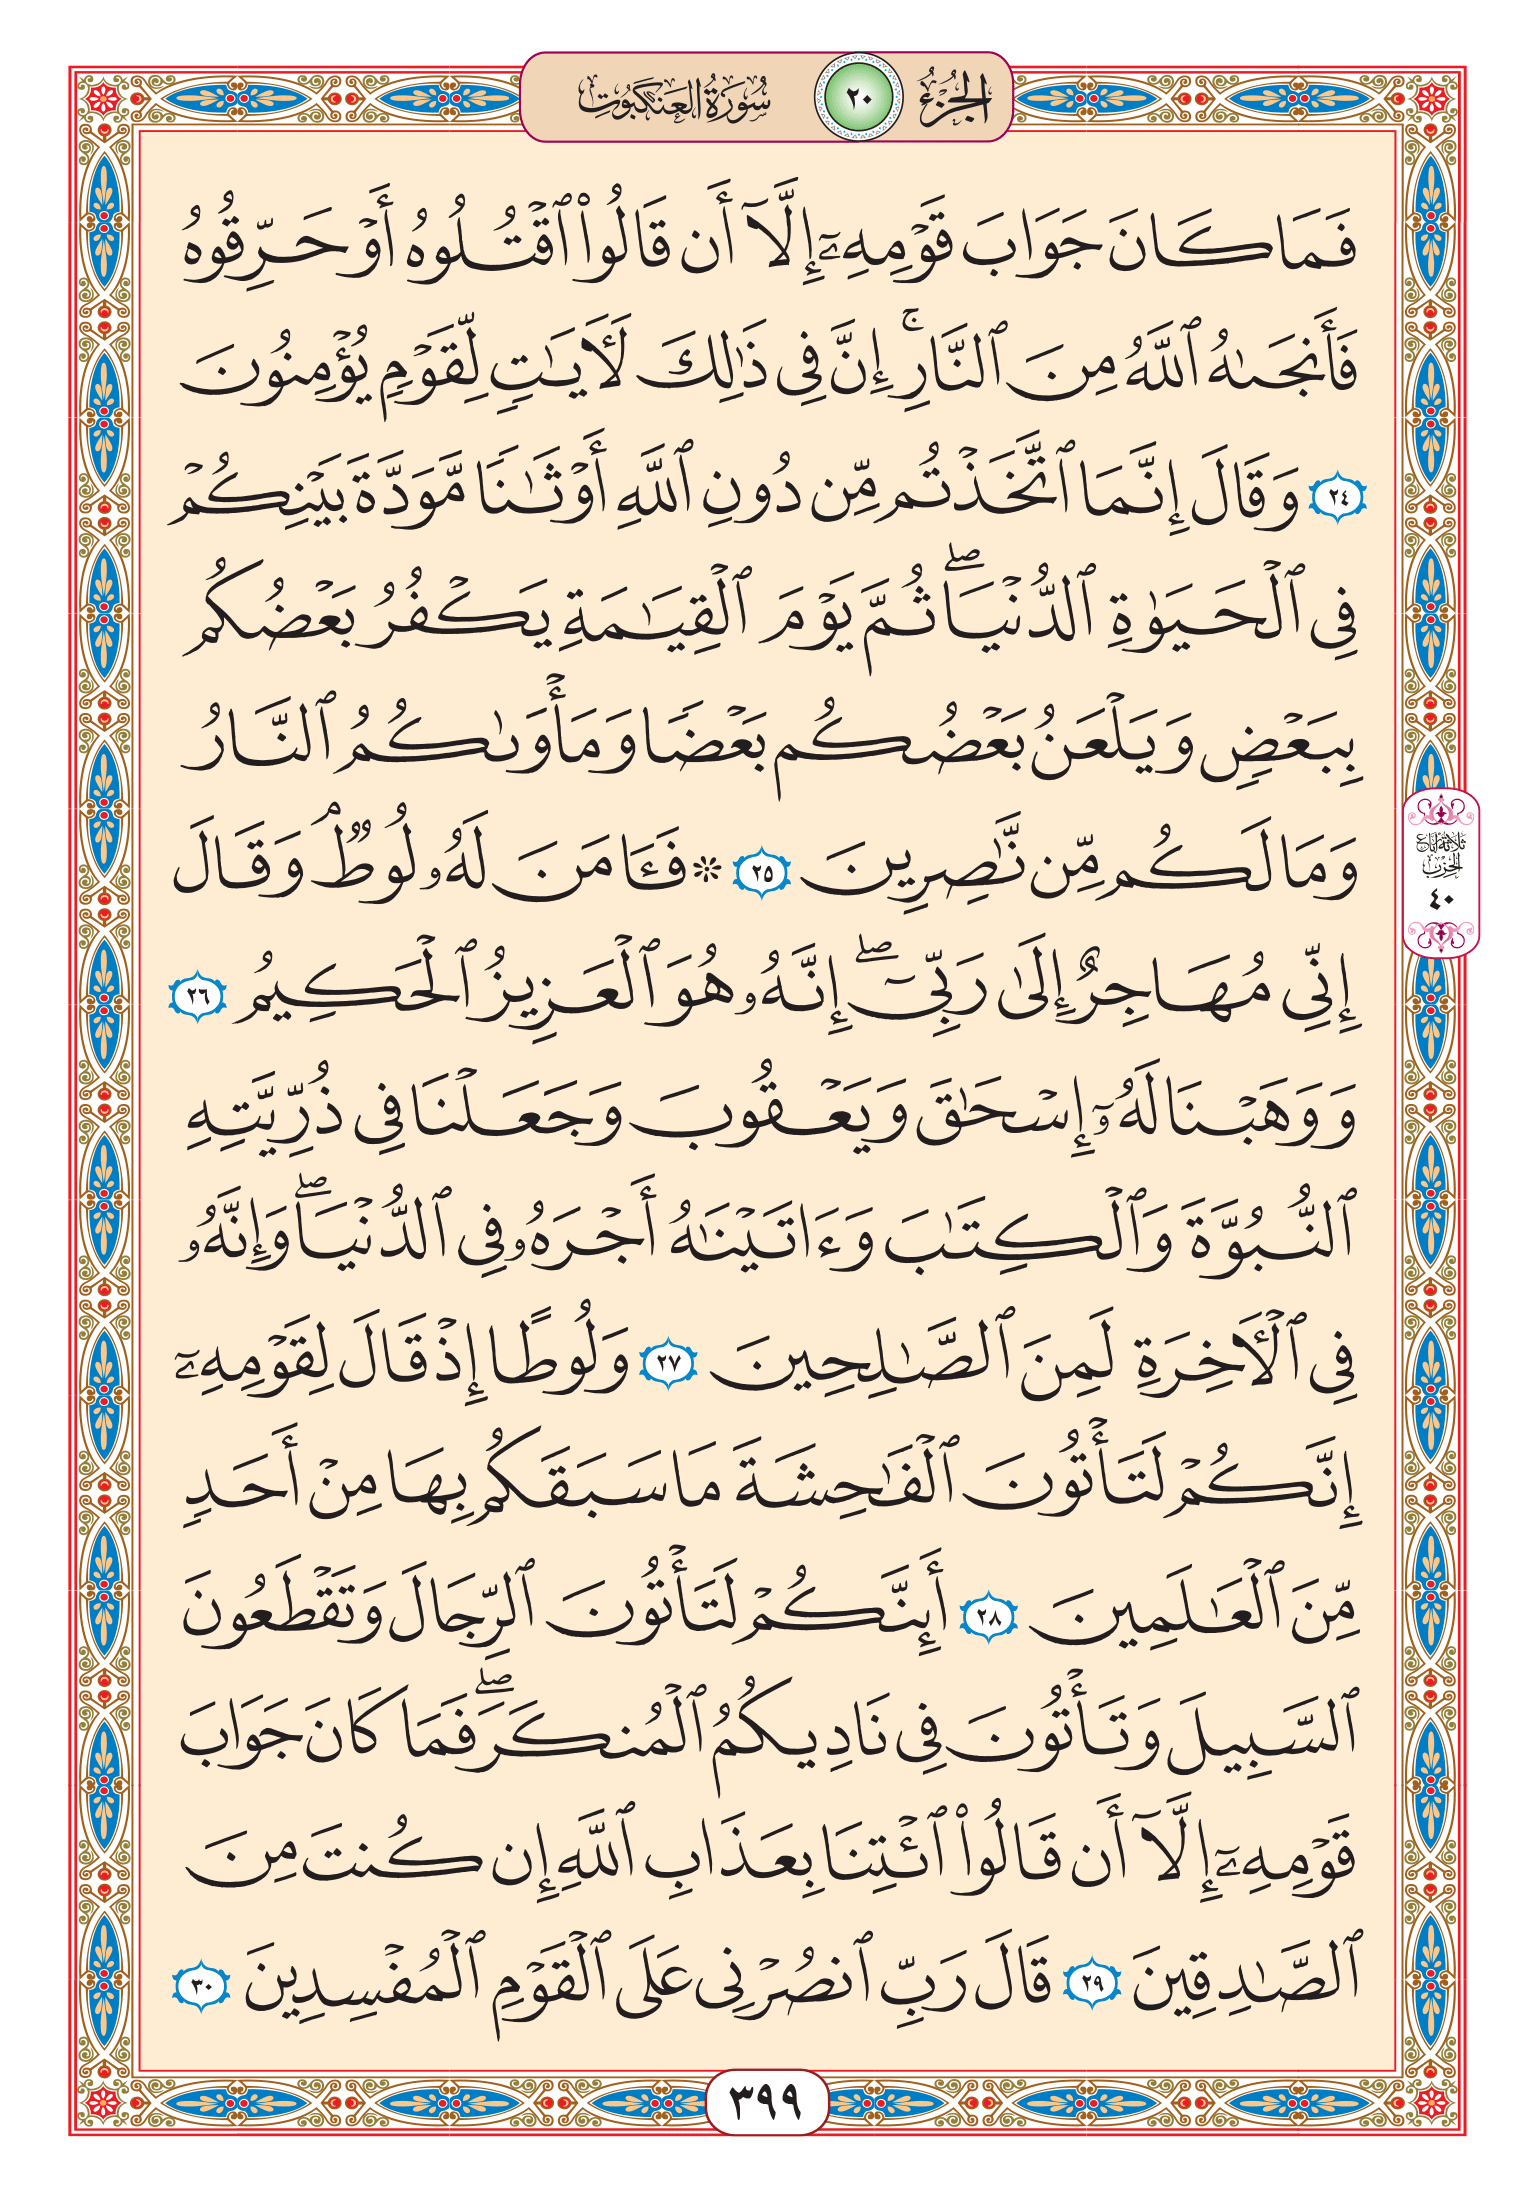 الجزء ٢٠ سورة العنكبوت
فَمَا كَانَ جَوَابَ قَوْمِهِۦٓ إِلَّآ أَن قَالُوا۟ ٱقْتُلُوهُ أَوْ حَرِّقُوهُ
فَأَنجَىٰهُ ٱللَّهُ مِنَ ٱلنَّارِ ۚ إِنَّ فِى ذَٰلِكَ لَـَٔايَـٰتٍ لِّقَوْمٍ يُؤْمِنُونَ
٢٤ وَقَالَ إِنَّمَا ٱتَّخَذْتُم مِّن دُونِ ٱللَّهِ أَوْثَـٰنًا مَّوَدَّةَ بَيْنِكُمْ
فِى ٱلْحَيَوٰةِ ٱلدُّنْيَا ۖ ثُمَّ يَوْمَ ٱلْقِيَـٰمَةِ يَكْفُرُ بَعْضُكُم
بِبَعْضٍ وَيَلْعَنُ بَعْضُكُم بَعْضًا وَمَأْوَىٰكُمُ ٱلنَّارُ
وَمَا لَكُم مِّن نَّـٰصِرِينَ ٢٥ ۞ فَـَٔامَنَ لَهُۥ لُوطٌ ۘ وَقَالَ
إِنِّى مُهَاجِرٌ إِلَىٰ رَبِّىٓ ۖ إِنَّهُۥ هُوَ ٱلْعَزِيزُ ٱلْحَكِيمُ ٢٦
وَوَهَبْنَا لَهُۥٓ إِسْحَـٰقَ وَيَعْقُوبَ وَجَعَلْنَا فِى ذُرِّيَّتِهِ
ٱلنُّبُوَّةَ وَٱلْكِتَـٰبَ وَءَاتَيْنَـٰهُ أَجْرَهُۥ فِى ٱلدُّنْيَا ۖ وَإِنَّهُۥ
فِى ٱلْـَٔاخِرَةِ لَمِنَ ٱلصَّـٰلِحِينَ ٢٧ وَلُوطًا إِذْ قَالَ لِقَوْمِهِۦٓ
إِنَّكُمْ لَتَأْتُونَ ٱلْفَـٰحِشَةَ مَا سَبَقَكُم بِهَا مِنْ أَحَدٍ
مِّنَ ٱلْعَـٰلَمِينَ ٢٨ أَئِنَّكُمْ لَتَأْتُونَ ٱلرِّجَالَ وَتَقْطَعُونَ
ٱلسَّبِيلَ وَتَأْتُونَ فِى نَادِيكُمُ ٱلْمُنكَرَ ۖ فَمَا كَانَ جَوَابَ
قَوْمِهِۦٓ إِلَّآ أَن قَالُوا۟ ٱئْتِنَا بِعَذَابِ ٱللَّهِ إِن كُنتَ مِنَ
ٱلصَّـٰدِقِينَ ٢٩ قَالَ رَبِّ ٱنصُرْنِى عَلَى ٱلْقَوْمِ ٱلْمُفْسِدِينَ ٣٠
ثلاثة أرباع
الحزب
٤٠
٣٩٩